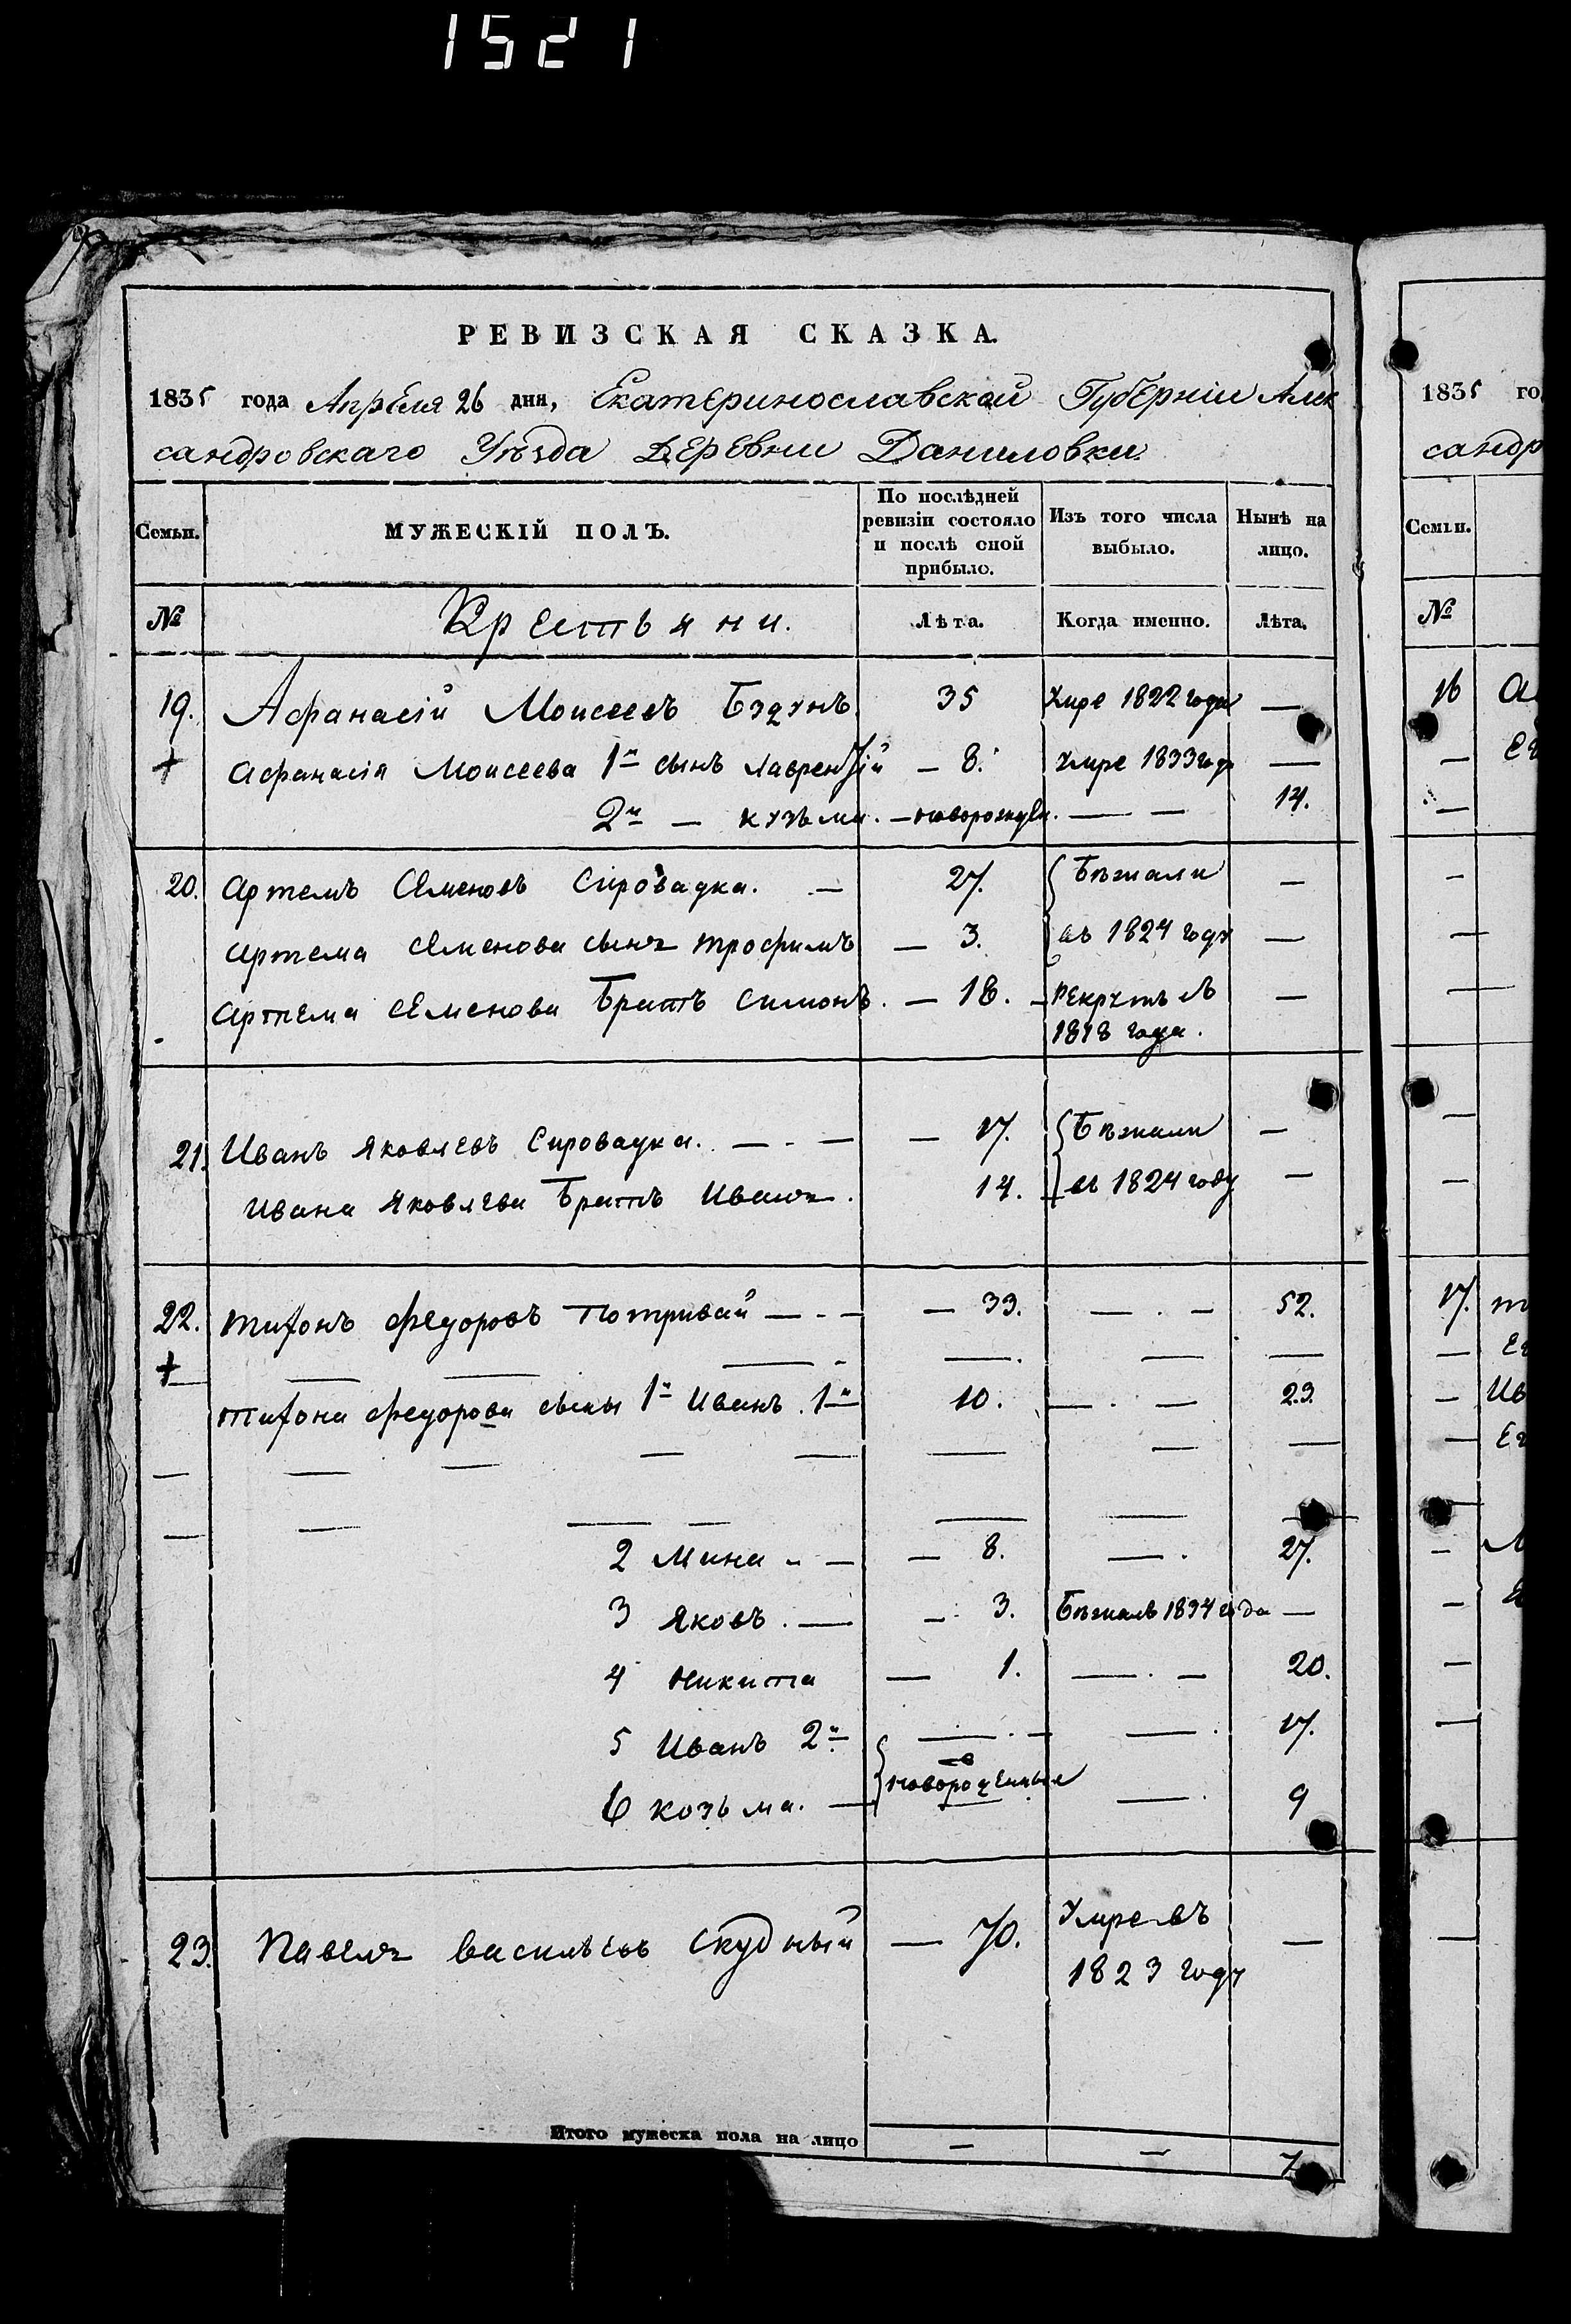 1521
РЕВИЗСКАЯ СКАЗКА.
1835 года Апреля 26 дня, Екатеринославской Губерніи Алек
сандровскаго Уѣзда Деревни Даниловки
Семьи. МУЖЕСКІЙ ПОЛЪ. По послѣдней ревизіи состояло и послѣ оной прибыло. Изъ того числа выбыло. Нынѣ на лицо.
№ Крестьяни. Лѣта. Когда именно. Лѣта.
19. Афанасій Моисеевъ Бздунъ 35 Умре 1822 года —
+ Афанасія Моисеева 1й сынъ Лаврентій — 8. Умре 1833 году —
2й — кузьма. — новорожден. — — 14.
20. Артемъ Семеновъ Сировадка. — 27. Бѣжали —
Артема Семенова сынъ Трофимъ — 3. въ 1824 году —
Артема Семенова Братъ Симонъ. — 18. — Рекрутъ въ —
1818 года.
21. Иванъ Яковлевъ Сировадка. — - — — 17. Бѣжали —
Ивана Яковлева Братъ Иванъ. 14. въ 1824 году —
22. Тихонъ Федоровъ Потривай — - — — 33. — . — 52.
+
Тихона Федорова сыны 1й Иванъ. 1й 10. — . — 23.
2 Мина - — — 8. — . 27.
3 Яковъ . — — 3. Бѣжалъ 1834 года —
4 Никита — 1. — . — 20.
5 Иванъ 2й — . — — . 17.
новорожденные
6 козьма. — — . 9
23. Павелъ Васильевъ Скудный — 70. Умре въ —
1823 году
Итого мужеска пола на лицо — — 7
1835 го
сандр
Семьи.
№
16
17.